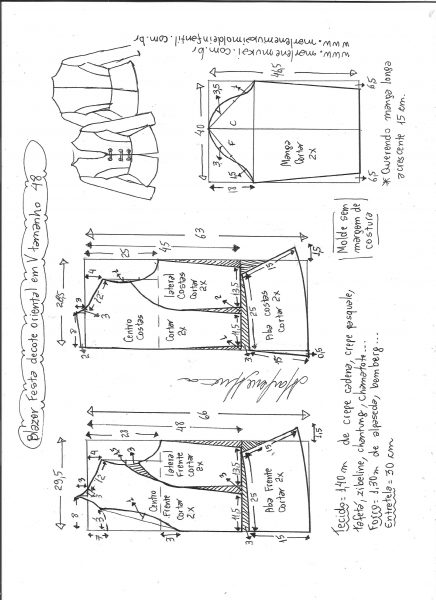 Blazer Festa decote oriental em V tamanho 48
www.marlenemukaimoldeinfantil.com.br
www.marlenemukai.com.br
46,5
40
3,5
3
C
F
15
18
Manga
Cortar
2X
6,5
6,5
* Querendo manga longa
acrescente 15 cm.
Molde sem
margem de
costura
63
45
25
29,5
8
3
4
12
3
2
Centro
Costas
Cortar
2X
lateral
Costas
Cortar
2X
11,5
13,5
3
25
15
Aba costas
Cortar
2X
15
1,5
0,5
Marlene Mukai
66
48
28
29,5
8
3
4
12
3
7
Centro
Frente
Cortar
2X
lateral
Frente
Cortar
2X
3
11,5
13,5
3
25
15
Aba Frente
Cortar
2X
15
1,5
Tecido = 1,40 m de crepe cadena, crepe pasquale,
tafetá, zibeline, chantung, Chamatote...
Forro = 1,30 m de alpaseda, bemberg...
Entretela = 30 cm